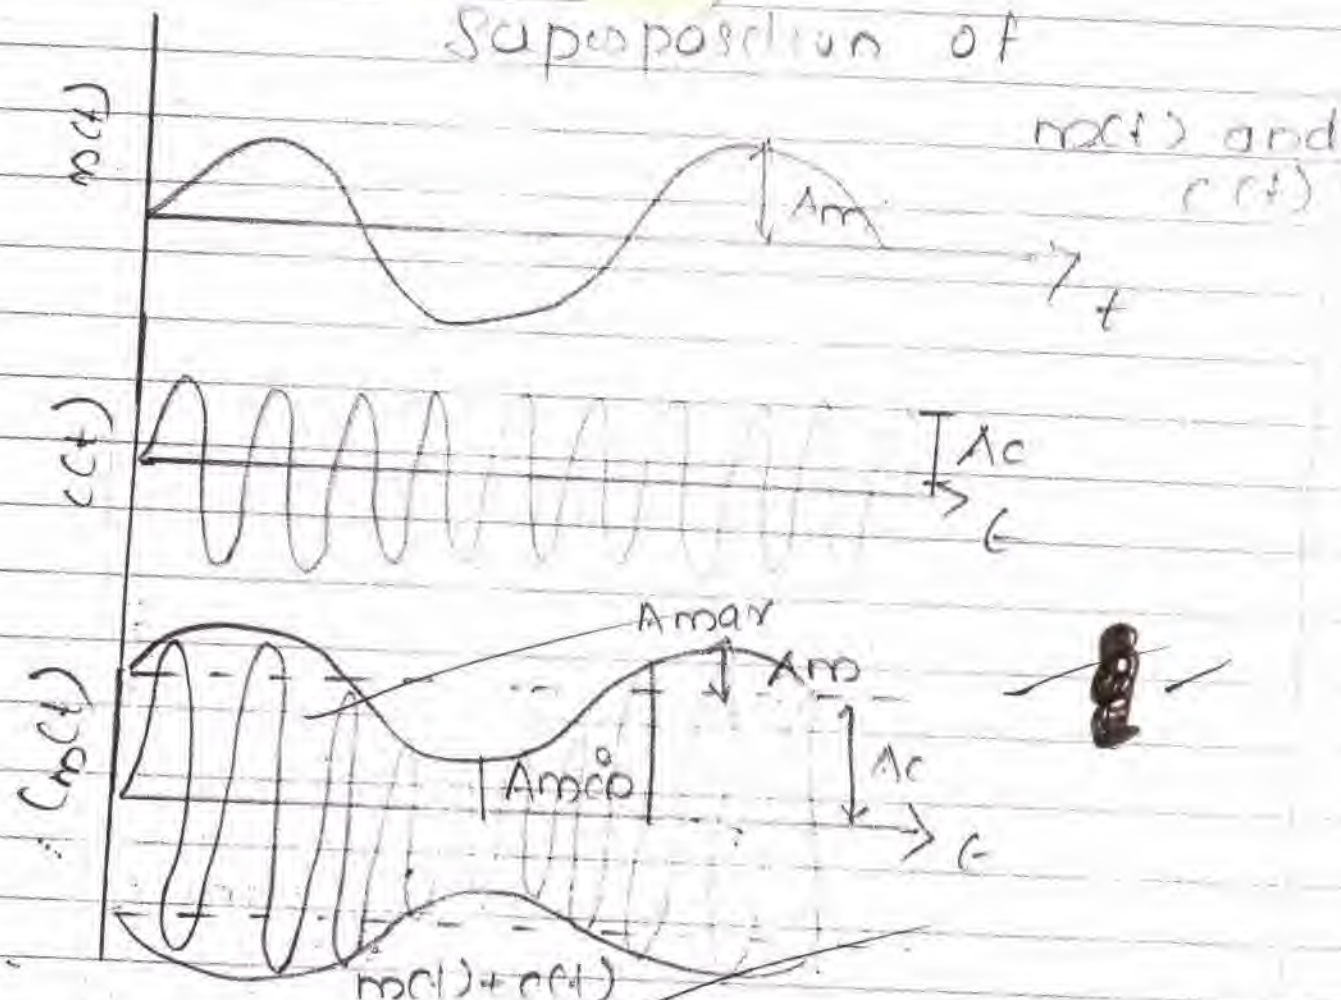 Superposition of
m(t) and
c(t)
m(t)
Am
t
c(t)
Ac
t
Amax
Cm(t)
Am
Amin
Ac
t
m(t)+c(t)